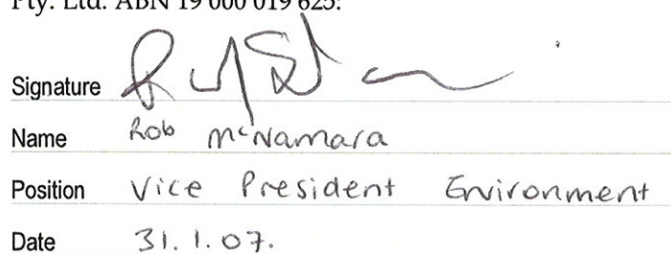 Pty. Ltd. ABN 19 000 019 625:
Signature
Name Rob McNamara
Position Vice President Environment
Date 31.1.07.